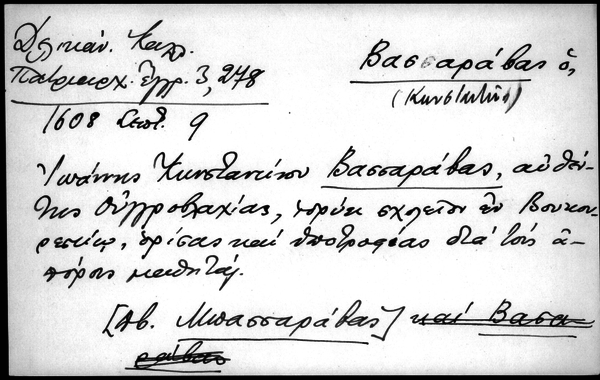 Δελικάν. Καλλ.
Πατριαρχ. Ἔγγρ. 3, 278
Βασσαράβας ὁ,
(Κωνσταντῖνος)
1608 Σεπτ. 9
Ἰωάννης Κωνσταντίνου Βασσαράβας, αὐθέν-
της Οὐγγροβλαχίας, ἵδρυσε σχολεῖον ἐν Βουκου-
ρεστίῳ, ὁρίσας καὶ ὑποτροφίας διὰ τοὺς ἀ-
πόρους μαθητάς.
[πβ. Μπασσαράβας] καὶ Βασα-
ράβας